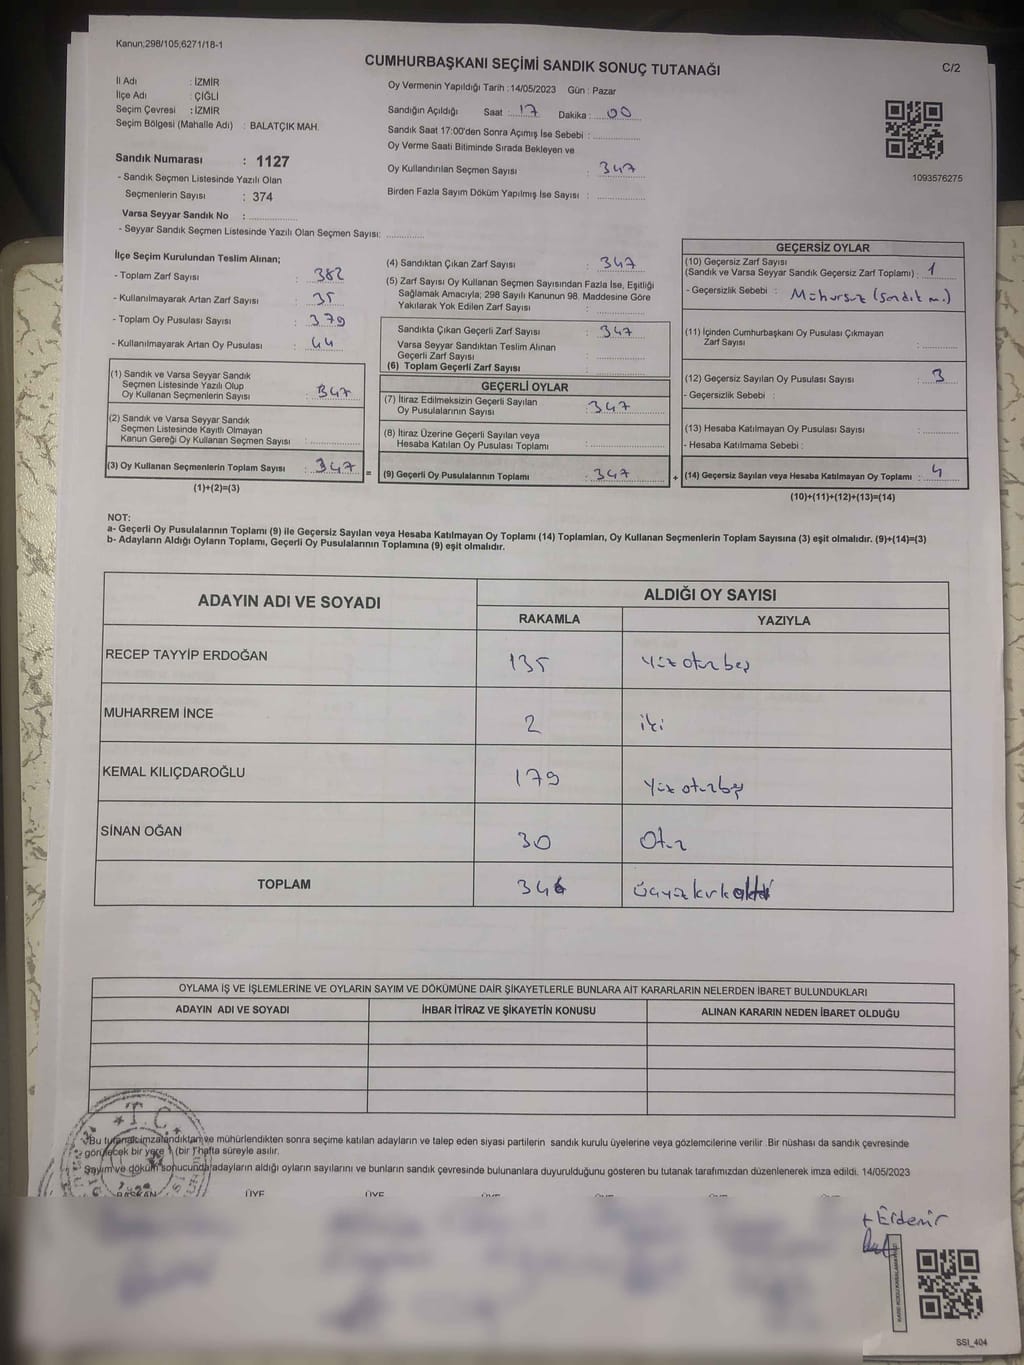 Kanun;298/105;6271/18-1
CUMHURBAŞKANI SEÇİMİ SANDIK SONUÇ TUTANAĞI
C/2
İl Adı : İZMİR
İlçe Adı : ÇİĞLİ
Seçim Çevresi : İZMİR
Seçim Bölgesi (Mahalle Adı) : BALATÇIK MAH.
Sandık Numarası : 1127
- Sandık Seçmen Listesinde Yazılı Olan
Seçmenlerin Sayısı : 374
Varsa Seyyar Sandık No :
- Seyyar Sandık Seçmen Listesinde Yazılı Olan Seçmen Sayısı:
Oy Vermenin Yapıldığı Tarih :14/05/2023 Gün : Pazar
Sandığın Açıldığı Saat : 17 Dakika : 00
Sandık Saat 17:00'den Sonra Açımış İse Sebebi :
Oy Verme Saati Bitiminde Sırada Bekleyen ve
Oy Kullandırılan Seçmen Sayısı : 347
Birden Fazla Sayım Döküm Yapılmış İse Sayısı :
1093576275
İlçe Seçim Kurulundan Teslim Alınan;
- Toplam Zarf Sayısı : 382
- Kullanılmayarak Artan Zarf Sayısı : 35
- Toplam Oy Pusulası Sayısı : 379
- Kullanılmayarak Artan Oy Pusulası : 44
(1) Sandık ve Varsa Seyyar Sandık
Seçmen Listesinde Yazılı Olup
Oy Kullanan Seçmenlerin Sayısı : 347
(2) Sandık ve Varsa Seyyar Sandık
Seçmen Listesinde Kayitli Olmayan
Kanun Gereği Oy Kullanan Seçmen Sayısı :
(3) Oy Kullanan Seçmenlerin Toplam Sayısı : 347 =
(1)+(2)=(3)
(4) Sandıktan Çıkan Zarf Sayısı : 347
(5) Zarf Sayısı Oy Kullanan Seçmen Sayısından Fazla İse, Eşitliği
Sağlamak Amacıyla; 298 Sayılı Kanunun 98. Maddesine Göre
Yakılarak Yok Edilen Zarf Sayısı :
Sandıkta Çıkan Geçerli Zarf Sayısı : 347
Varsa Seyyar Sandıktan Teslim Alınan
Geçerli Zarf Sayısı :
(6) Toplam Geçerli Zarf Sayısı :
GEÇERLİ OYLAR
(7) İtiraz Edilmeksizin Geçerli Sayılan
Oy Pusulalarının Sayısı : 347
(8) İtiraz Üzerine Geçerli Sayılan veya
Hesaba Katılan Oy Pusulası Toplamı :
(9) Geçerli Oy Pusulalarının Toplamı : 347 +
GEÇERSİZ OYLAR
(10) Geçersiz Zarf Sayısı
(Sandık ve Varsa Seyyar Sandık Geçersiz Zarf Toplamı) : 1
- Geçersizlik Sebebi : Mühürsüz (sandık m.)
(11) İçinden Cumhurbaşkanı Oy Pusulası Çıkmayan
Zarf Sayısı :
(12) Geçersiz Sayılan Oy Pusulası Sayısı : 3
- Geçersizlik Sebebi :
(13) Hesaba Katılmayan Oy Pusulası Sayısı :
- Hesaba Katılmama Sebebi :
(14) Geçersiz Sayılan veya Hesaba Katılmayan Oy Toplamı : 4
(10)+(11)+(12)+(13)=(14)
NOT:
a- Geçerli Oy Pusulalarının Toplamı (9) ile Geçersiz Sayılan veya Hesaba Katılmayan Oy Toplamı (14) Toplamları, Oy Kullanan Seçmenlerin Toplam Sayısına (3) eşit olmalıdır. (9)+(14)=(3)
b- Adayların Aldığı Oyların Toplamı, Geçerli Oy Pusulalarının Toplamına (9) eşit olmalıdır.
ADAYIN ADI VE SOYADI
ALDIĞI OY SAYISI
RAKAMLA YAZIYLA
RECEP TAYYİP ERDOĞAN 135 Yüz otuz beş
MUHARREM İNCE 2 iki
KEMAL KILIÇDAROĞLU 179 Yüz otuz beş
SİNAN OĞAN 30 Otuz
TOPLAM 346 Üçyüz kırk altı
OYLAMA İŞ VE İŞLEMLERİNE VE OYLARIN SAYIM VE DÖKÜMÜNE DAİR ŞİKAYETLERLE BUNLARA AİT KARARLARIN NELERDEN İBARET BULUNDUKLARI
ADAYIN ADI VE SOYADI İHBAR İTİRAZ VE ŞİKAYETİN KONUSU ALINAN KARARIN NEDEN İBARET OLDUĞU
T.C.
Bu tutanak imzalandıktan ve mühürlendikten sonra seçime katılan adayların ve talep eden siyasi partilerin sandık kurulu üyelerine veya gözlemcilerine verilir. Bir nüshası da sandık çevresinde
görülecek bir yere 1 (bir) hafta süreyle asılır.
Sayım ve döküm sonucunda adayların aldığı oyların sayılarını ve bunların sandık çevresinde bulunanlara duyurulduğunu gösteren bu tutanak tarafımızdan düzenlenerek imza edildi. 14/05/2023
BAŞKAN ÜYE ÜYE
Erdemir
SSI_404